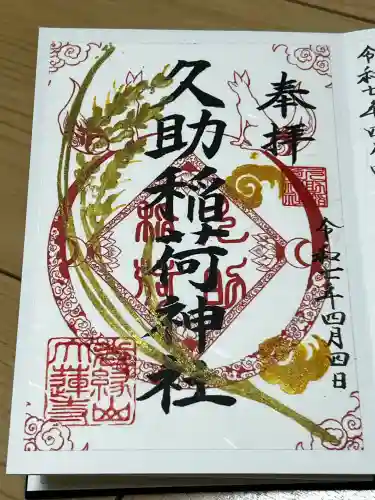 令和七年四月四
奉拝
久助稲荷神社
令和七年四月四日